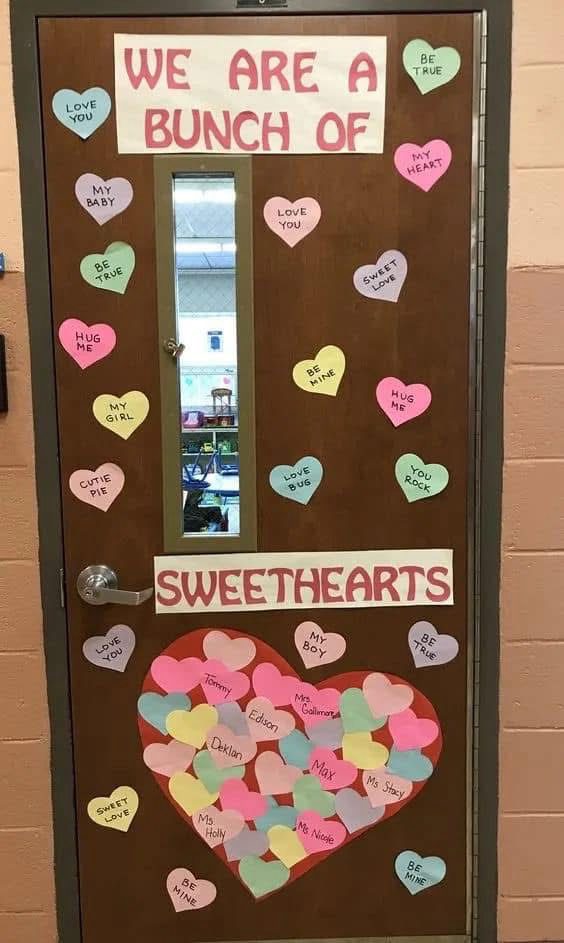 WE ARE A
BUNCH OF
BE
TRUE
LOVE
YOU
MY
HEART
MY
BABY
LOVE
YOU
BE
TRUE
SWEET
LOVE
HUG
ME
BE
MINE
MY
GIRL
HUG
ME
CUTIE
PIE
LOVE
BUG
YOU
ROCK
SWEETHEARTS
LOVE
YOU
MY
BOY
BE
TRUE
Tommy
Mrs.
Edison
Deklan
Max
Ms Stacy
Ms.
Holly
Ms Nicole
SWEET
LOVE
BE
MINE
BE
MINE